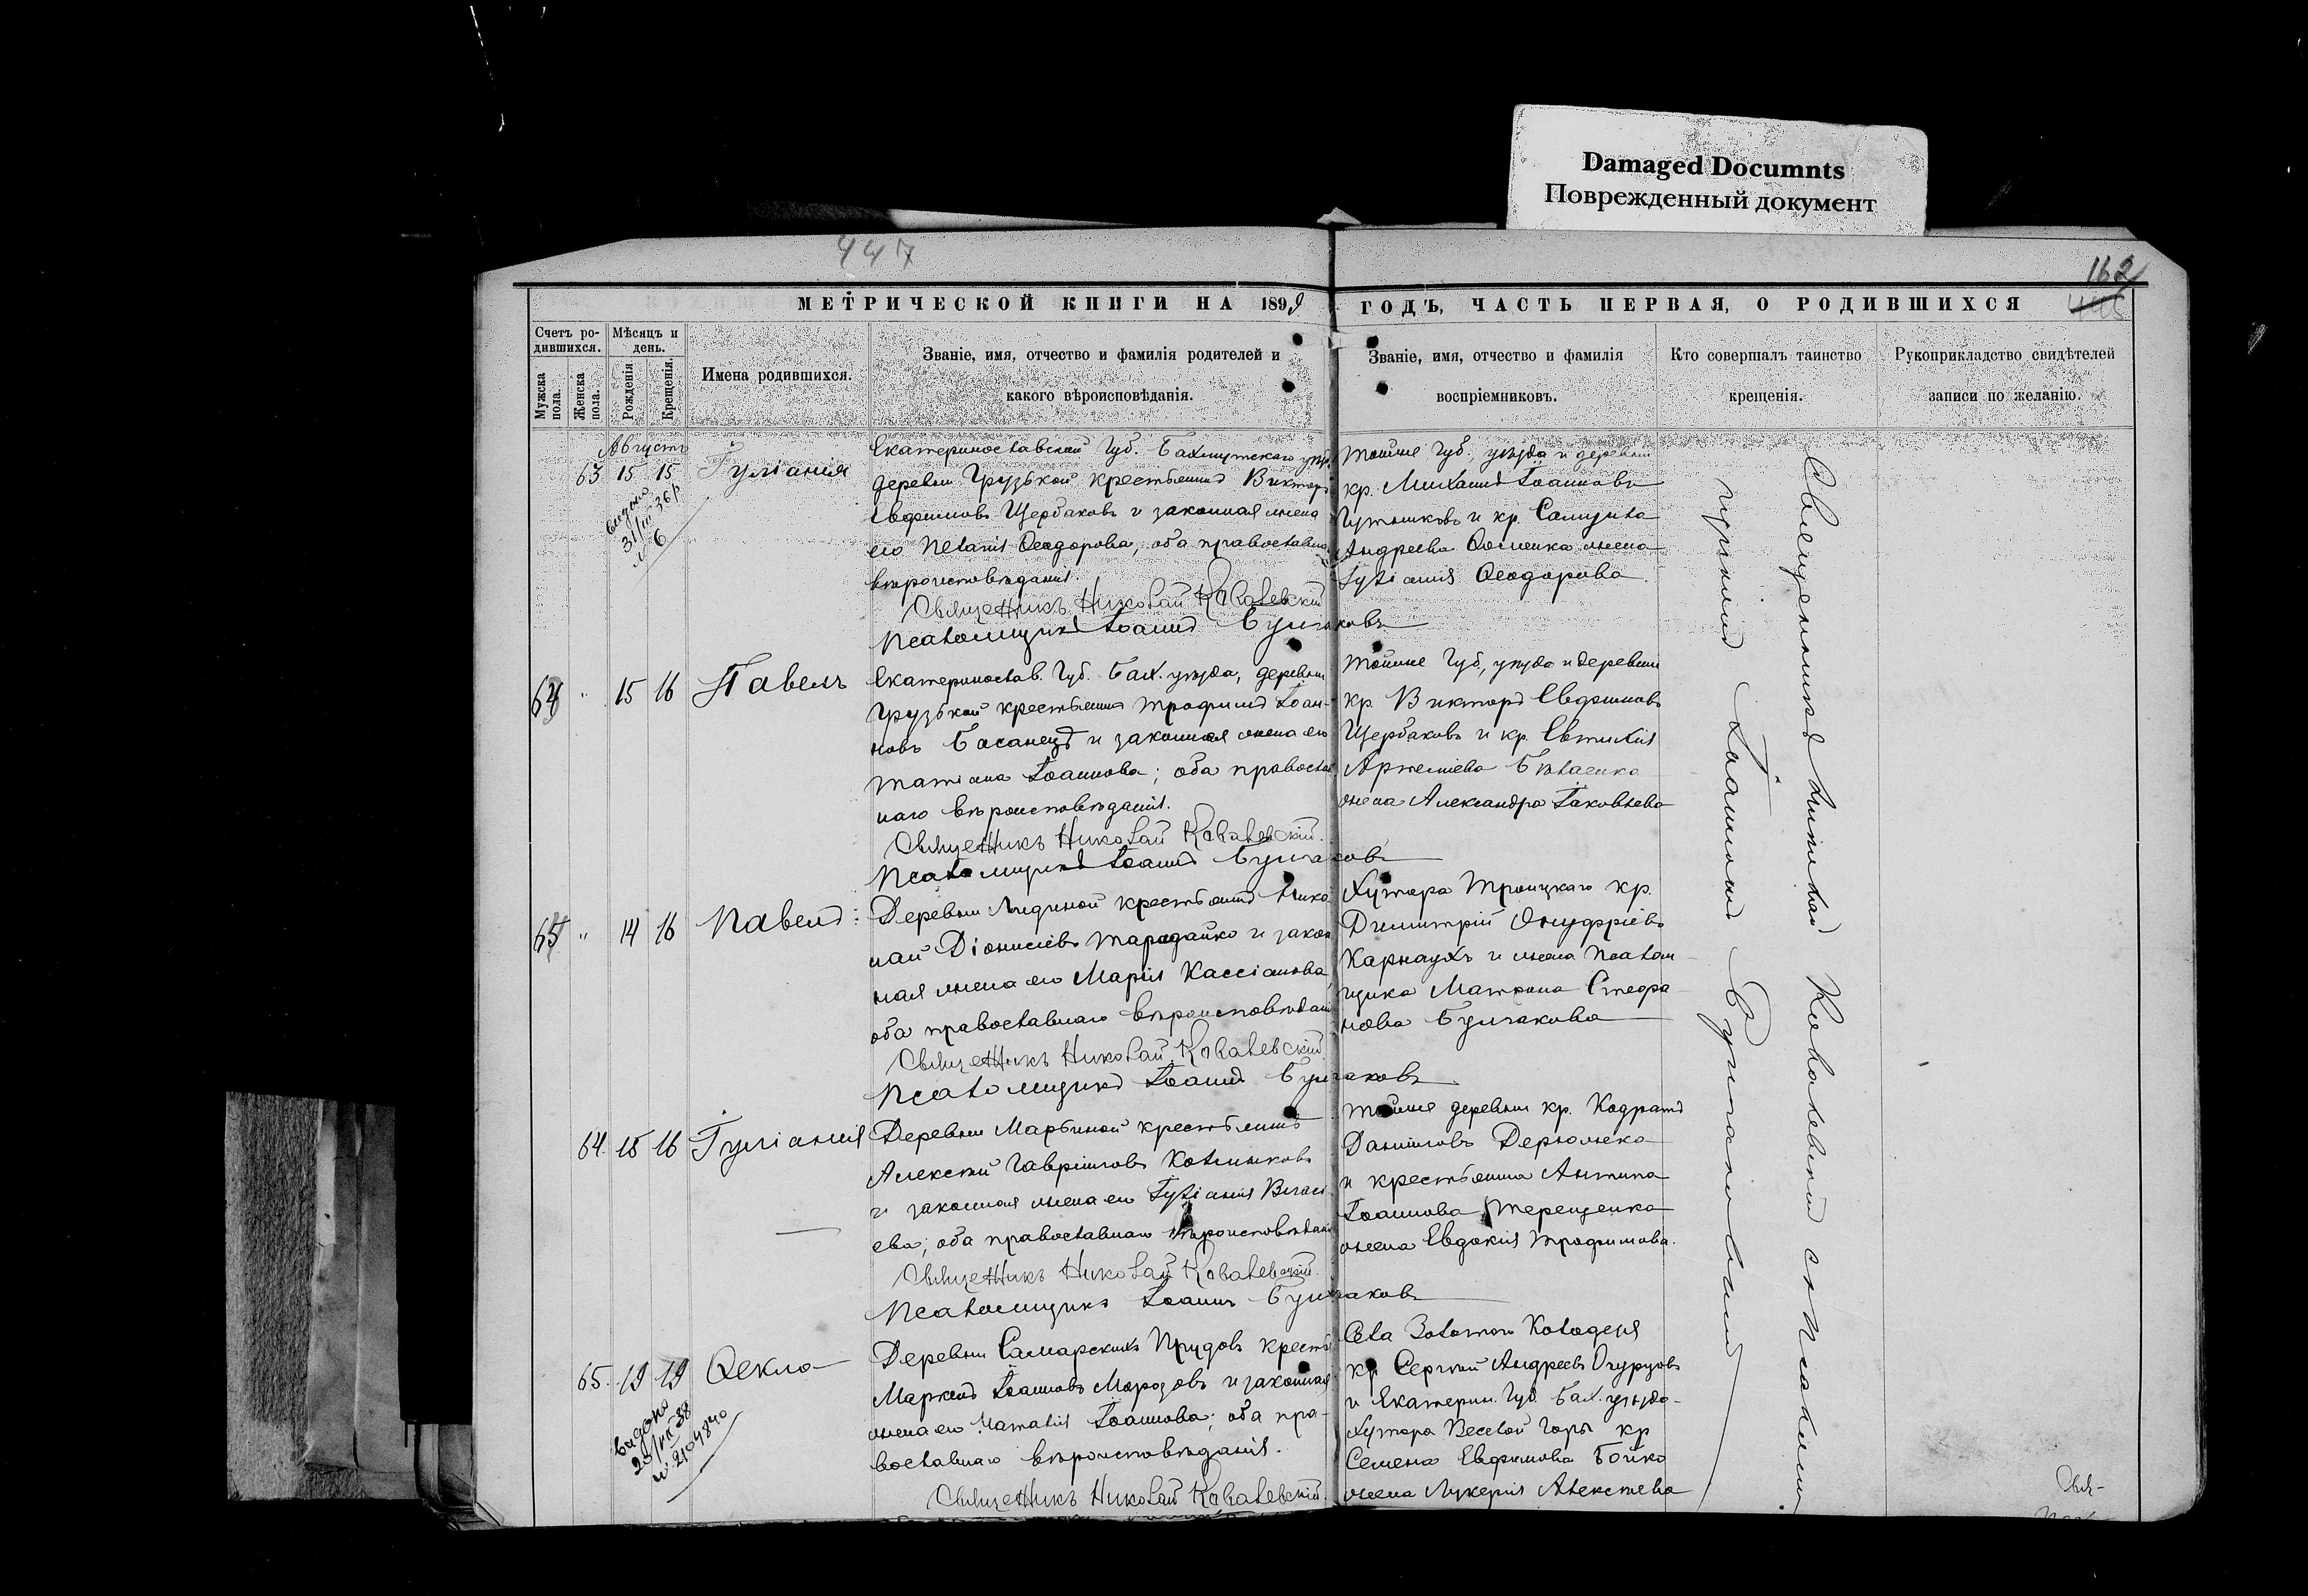 Damaged Documnts
Поврежденный документ
447
162
МЕТРИЧЕСКОЙ КНИГИ НА 1899
ГОДЪ, ЧАСТЬ ПЕРВАЯ, О РОДИВШИХСЯ
Счетъ ро-
дившихся.
Мужска
пола.
Женска
пола.
Мѣсяцъ и
день.
Рожденія
Крещенія.
Имена родившихся.
Званіе, имя, отчество и фамилія родителей и
какого вѣроисповѣданія.
Званіе, имя, отчество и фамилія
воспріемниковъ.
Кто совершалъ таинство
крещенія.
Рукоприкладство свидѣтелей
записи по желанію.
Августъ
63 15 15 Іуліанія
выдано
31/III 36 р
№ 6
Екатеринославской Губ. Бахмутскаго уѣз.
деревни Грузькой крестьянинъ Викторъ
Евфимовъ Щербаковъ и законная жена
его Пелагія Ѳеодорова, оба православна
вѣроисповѣданія.
Священникъ Николай Ковалевскій
Псаломщикъ Іоаннъ Булгаковъ
тойже Губ., уѣзда и деревни
кр. Михаилъ Іоанновъ
и кр.
Андреева жена
Іуліанія Ѳеодорова.
64 " 15 16 Павелъ
Екатеринослав. Губ. Бах. уѣзда, деревни
Грузькой крестьянинъ Трофимъ Іоан-
новъ Басанецъ и законная жена его
Татіана Іоаннова; оба православ
наго вѣроисповѣданія.
Священникъ Николай Ковалевскій.
Псаломщикъ Іоаннъ Булгаковъ
тойже Губ., уѣзда и деревни
кр. Викторъ Евфимовъ
Щербаковъ и кр. Евтихія
Артеміева
жена Александра Іаковлева
65 " 14 16 Павелъ:
Деревни крестьянинъ Нико
лай Діонисіевъ Тарадайко и закон
ная жена его Марія Кассіанова
оба православнаго вѣроисповѣдан
Священникъ Николай Ковалевскій
Псаломщикъ Іоаннъ Булгаковъ
Хутора Троицкаго кр.
Димитрій Онуфріевъ
Карнаухъ и жена псалом
щика Матрона Стефа
нова Булгакова
64. 15 16 Іуліанія
Деревни Марьиной крестьянинъ
Алексій Гавріиловъ Котляковъ
и законная жена его Іуліанія Власі-
ева; оба православнаго вѣроисповѣдані
Священникъ Николай Ковалевскій.
Псаломщикъ Іоаннъ Булгаковъ
тойже деревни кр. Кодратъ
Даниловъ
и крестьянина Антипа
Іоаннова Терещенка
жена Евдокія Трофимова.
65. 19 19 Ѳекла
выдано
№ 2104840
Деревни Самарскихъ Прудовъ крестья
Маркелъ Іоанновъ Морозовъ и законная
жена его Наталія Іоаннова; оба пра-
вославнаго вѣроисповѣданія.
Священникъ Николай Ковалевскій.
Села Золотого Колодезя
кр. Сергій Андреевъ Огурцовъ
и Екатерин. Губ. Бах. уѣзда
Хутора Веселой Горы кр
Семена Евфимова Бойко
жена Лукерія Алексѣева
Священникъ Николай Ковалевскій съ псаломщи
Іоанномъ Булгаковымъ
Свя-